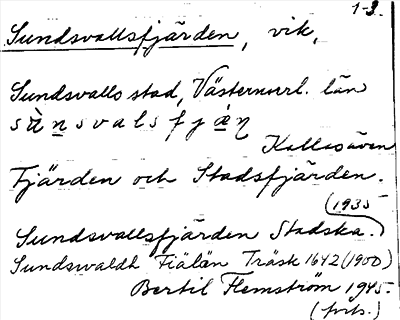 1-3.
Sundsvallsfjärden, vik,
Sundsvalls stad, Västernorrl. län
sùnsvalsfjæ̀ṇ
Kallas även
Fjärden och Stadsfjärden.
(1935
Sundsvallsfjärden Stadska.)
Sundswaldh Fiälän Träsk 1642 (1900)
Bertil Flemström 1945.
(forts.)